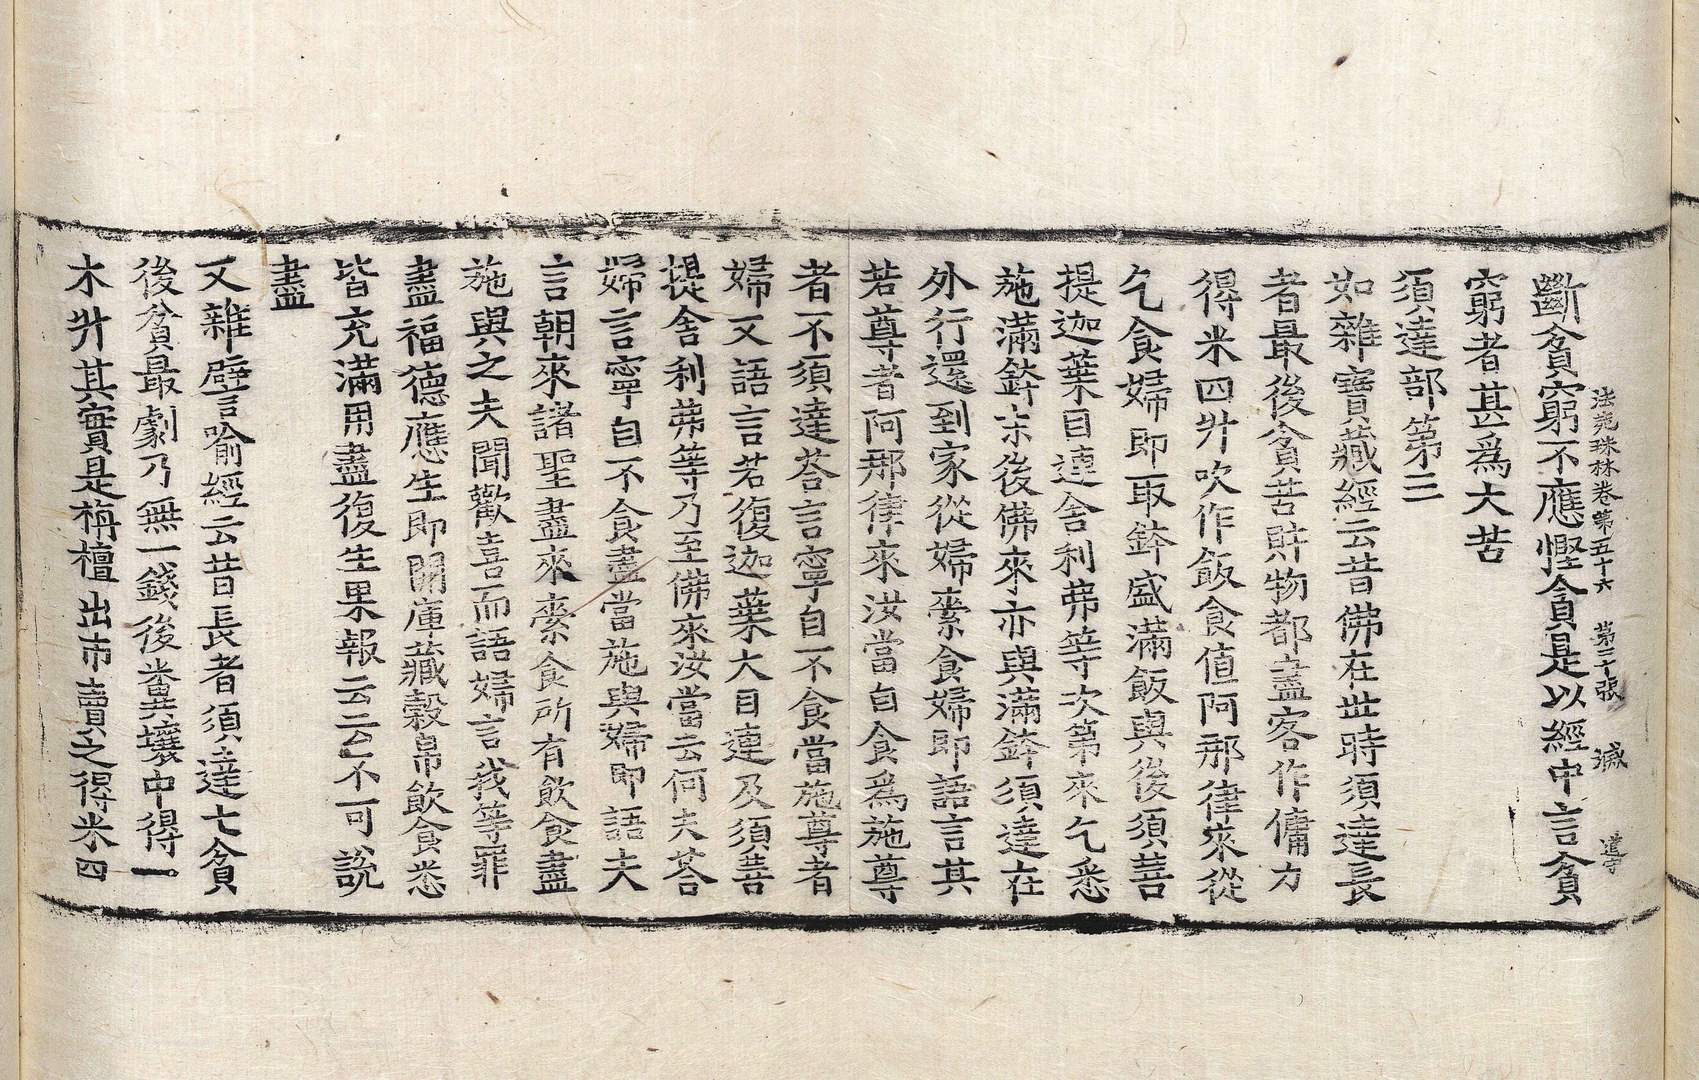 法苑珠林卷第五十六　第二十張　滅　遵守
斷貧窮不應慳貪是以經中言貧
窮者甚爲大苦
須達部第三
如雜寶藏經云昔佛在世時須達長
者最後貧苦財物都盡客作傭力
得米四升吹作飯食值阿那律來從
乞食婦即取鉢盛滿飯與後須菩
提迦葉目連舍利弗等次第來乞悉
施滿鉢末後佛來亦與滿鉢須達在
外行還到家從婦索食婦即語言其
若尊者阿那律來汝當自食爲施尊
者不須達荅言寧自不食當施尊者
婦又語言若復迦葉大目連及須菩
提舍利弗等乃至佛來汝當云何夫荅
婦言寧自不食盡當施與婦即語夫
言朝來諸聖盡來索食所有飲食盡
施與之夫聞歡喜而語婦言我等罪
盡福德應生即開庫藏穀帛飲食悉
皆充滿用盡復生果報云云不可說
盡
又雜譬喻經云昔長者須達七貧
後貧最劇乃無一錢後糞壤中得一
木升其實是栴檀出市賣之得米四